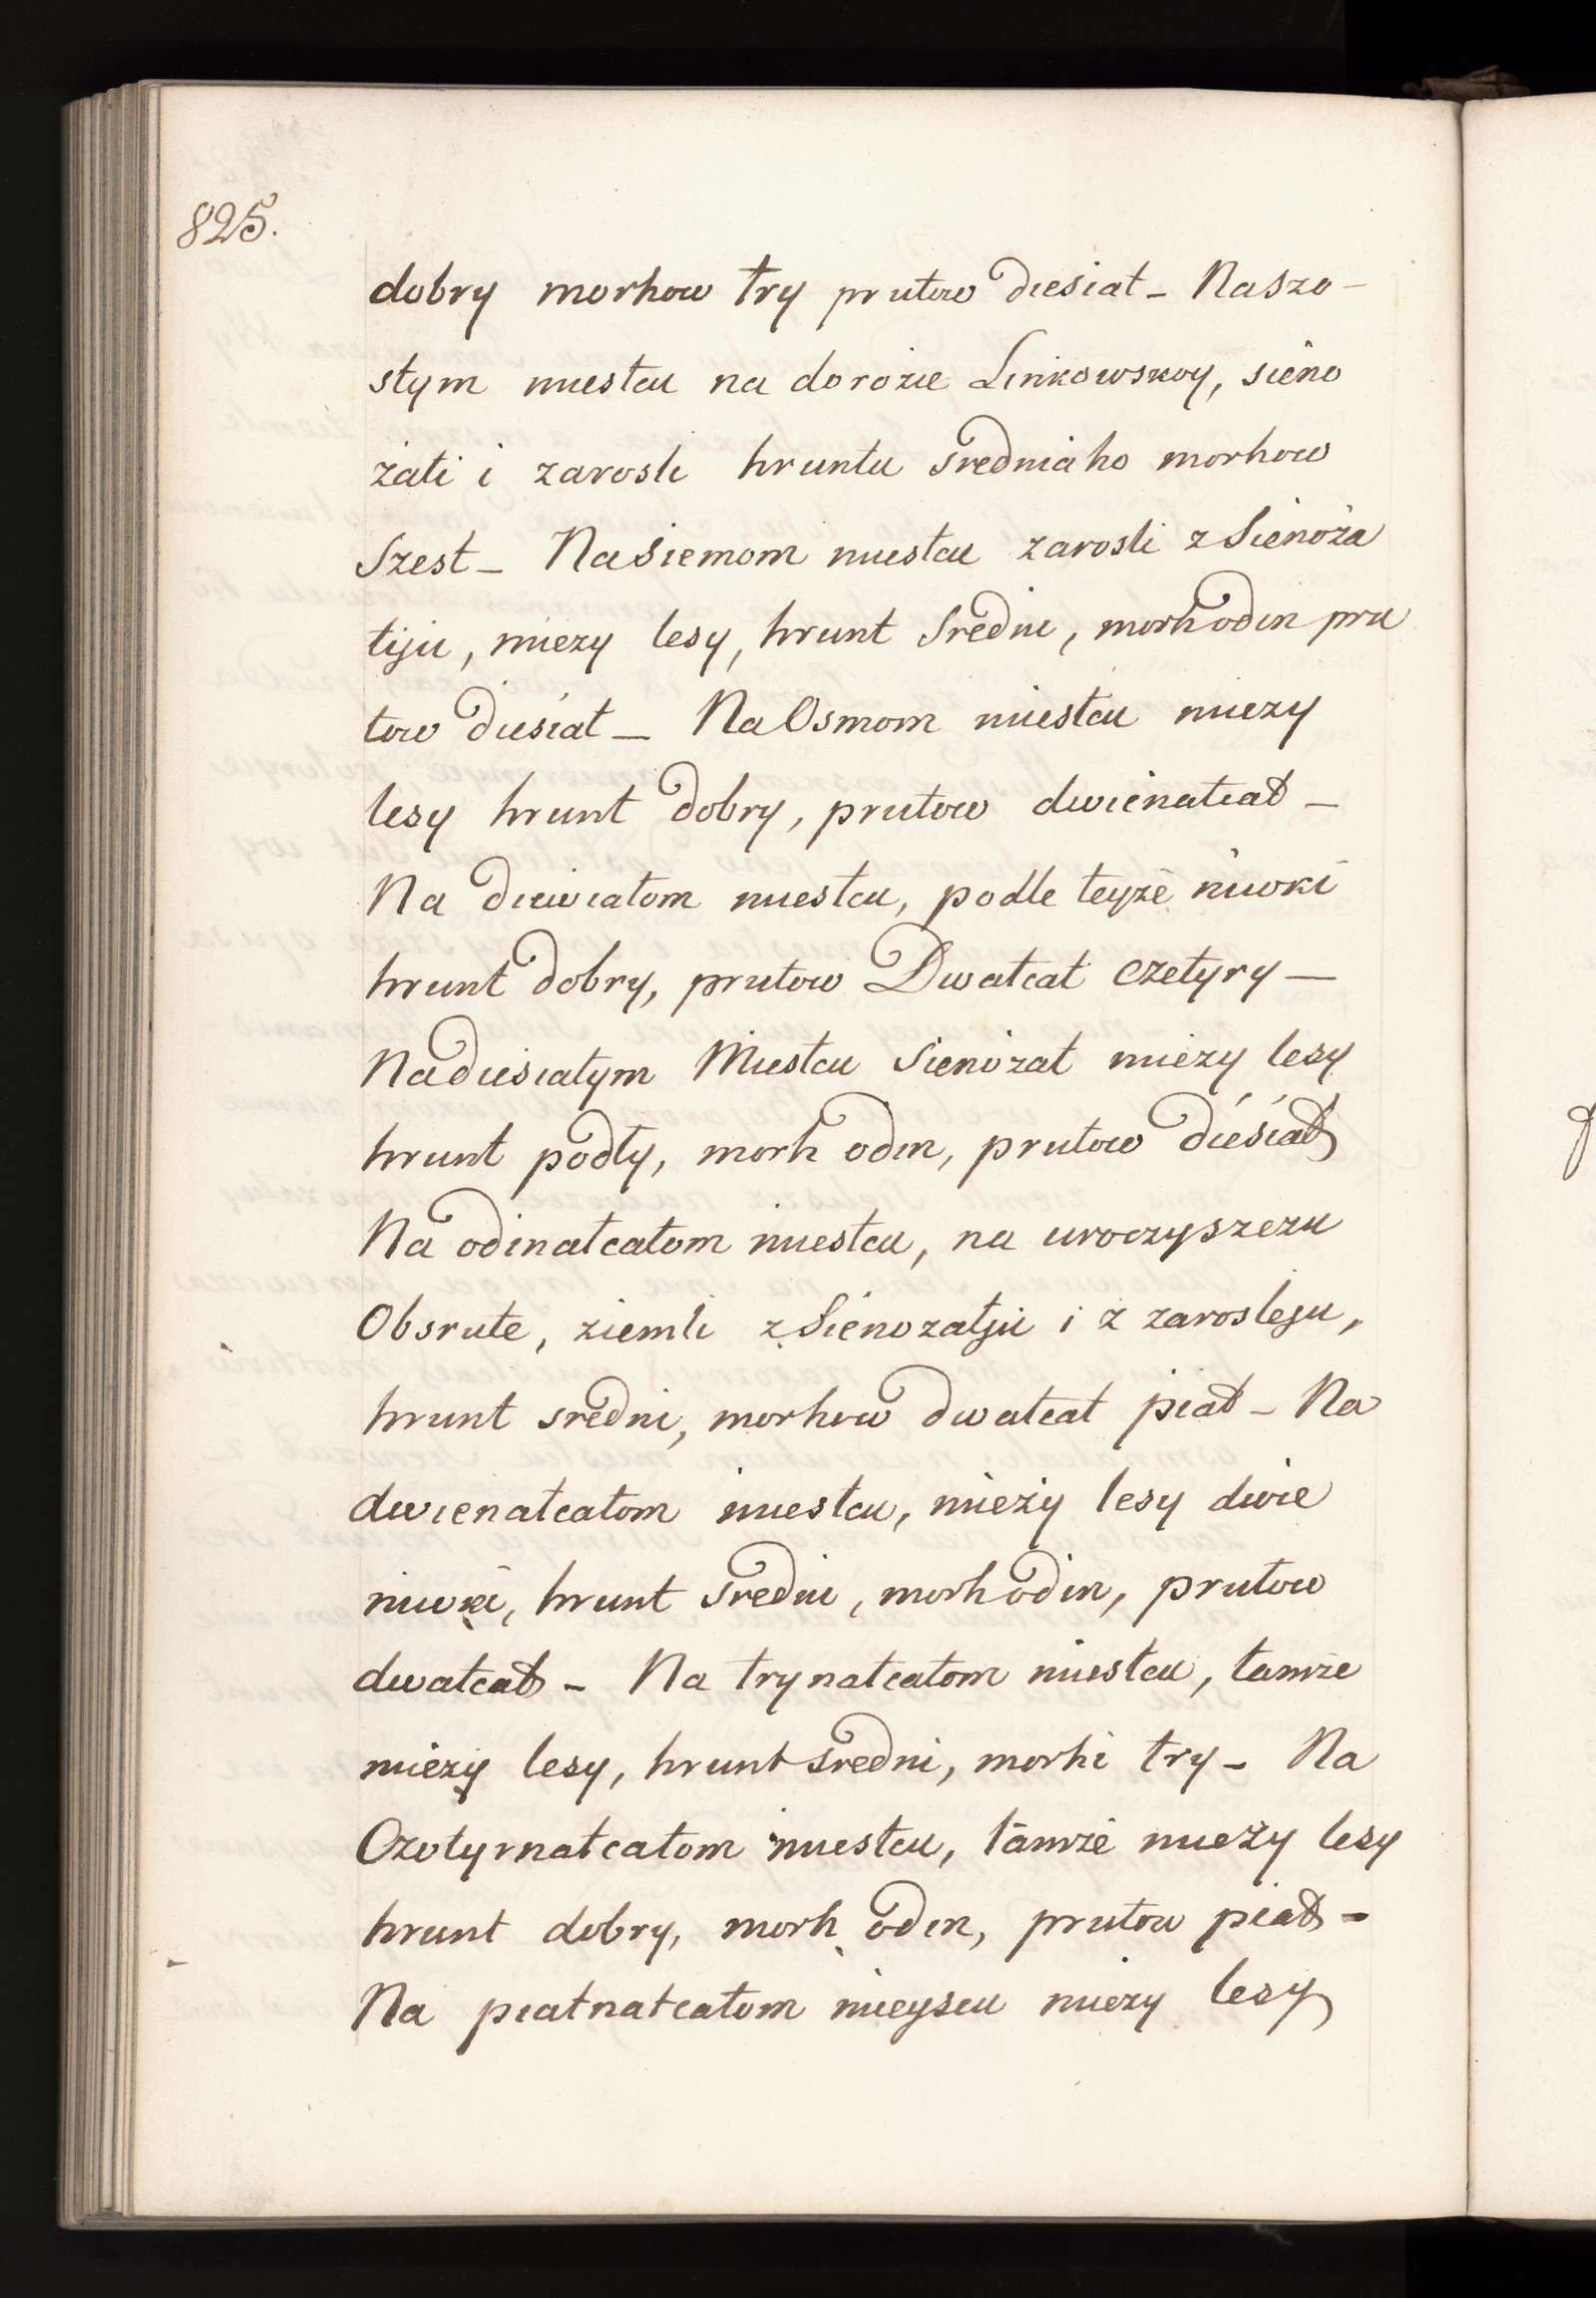 825.
dobry morhow try prutow diesiat_ Naszo-
stym miestcu na dorozie Linkowskoy, sieno
żati i zarosli hruntu sredniaho morhow
Szest_ Nasiemom miestcu zarosli z Sienoża
tiju, miezy lesy, hrunt Sredni, morh odin pru
tow diesiat_ Na Osmom miestcu miezy
lesy hrunt dobry, prutow dwienatcat_
Na diewiatom miestcu, podle teyże niwki
hrunt dobry, prutow Dwatcat czetyry_
Nadiesiatym Miestcu Sienożat miezy lesy
hrunt podły, morh odin, prutow diesiat
Na odinatcatom miestcu, na uroczyszczu
Obsrute, ziemli z Sienozatju i z zarosleju,
hrunt sredni, morhow dwatcat piat_ Na
dwienatcatom miestcu, mieży lesy dwie
niwki, hrunt Sredni, morh odin, prutow
dwatcat_ Na trynatcatom miestcu, tamże
miezy lesy, hrunt sredni, morhi try_ Na
Czotyrnatcatom miestcu, tamże mieży lesy
hrunt dobry, morh odin, prutow piat-
Na piatnatcatom mieyscu miezy lesy